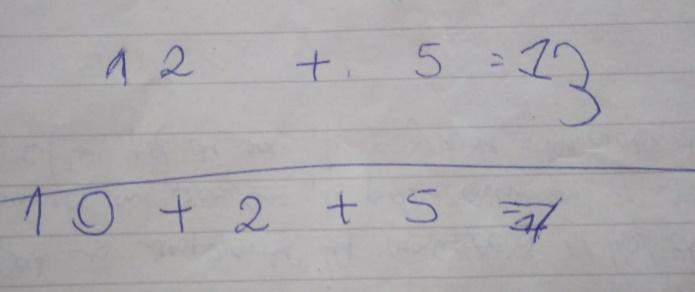 12 + 5 = 13
10 + 2 + 5 =